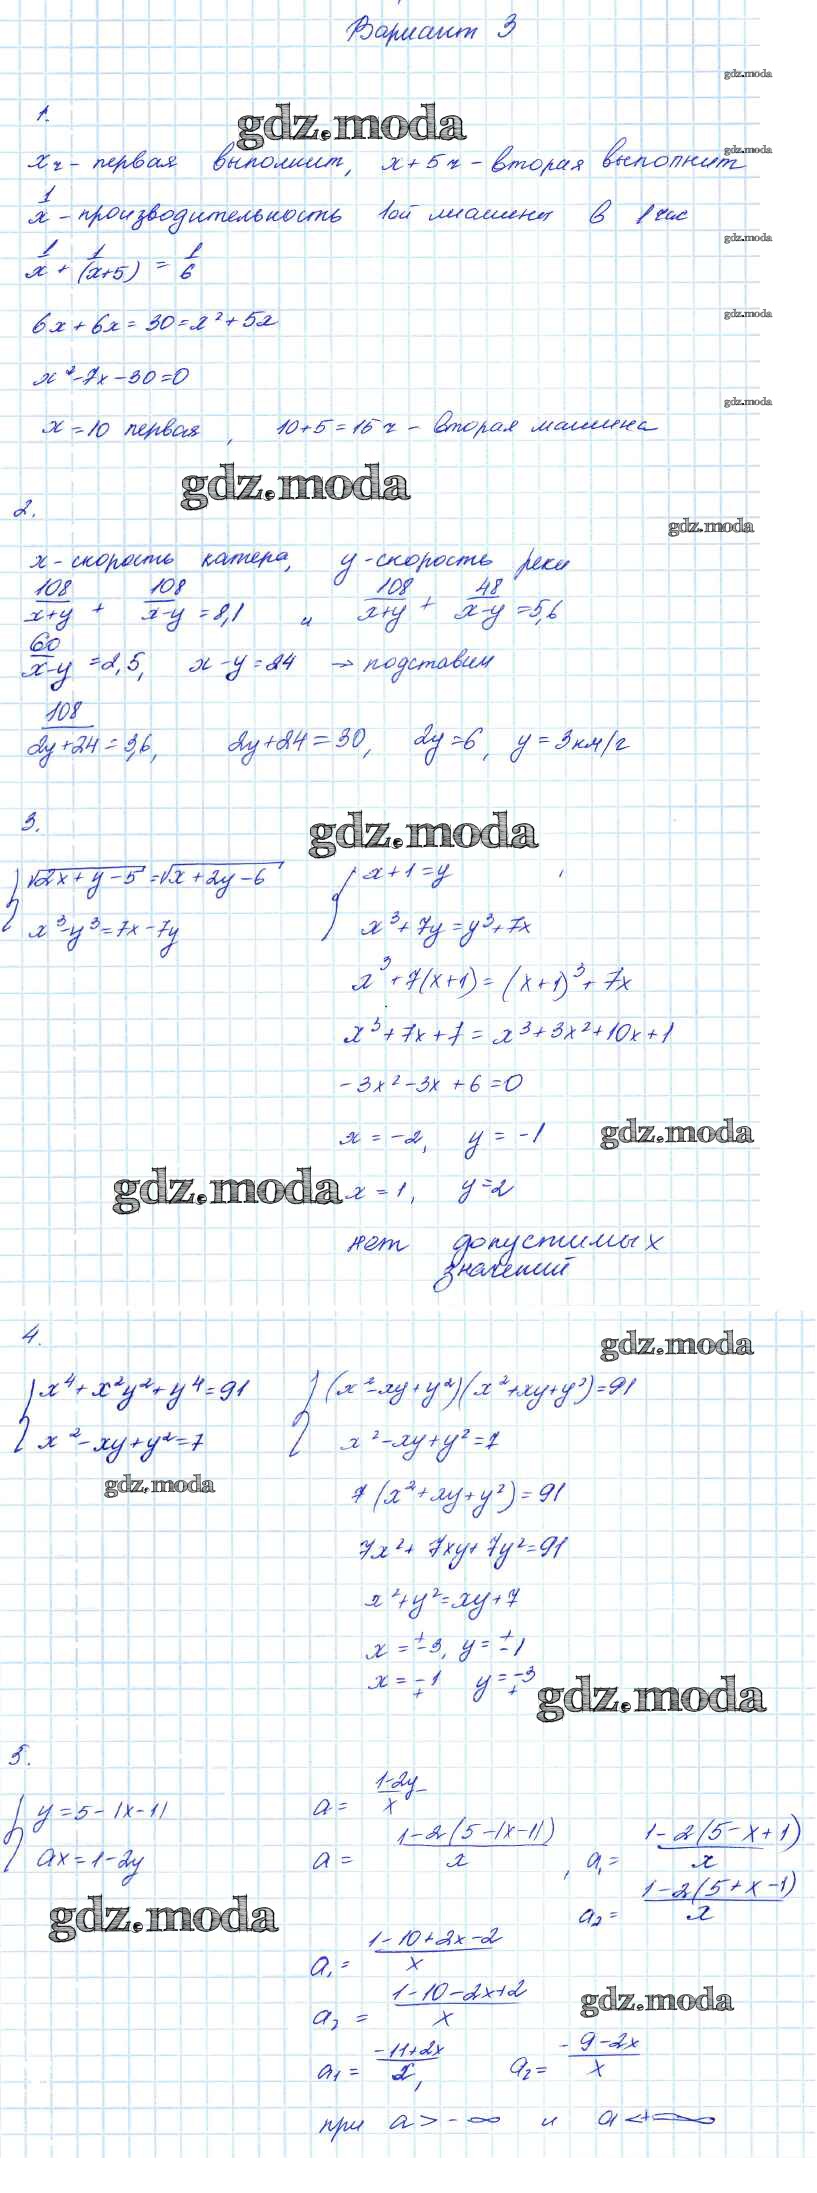 Вариант 3
gdz.moda
1.
gdz.moda
x ч - первая выполнит, x+5 ч - вторая выполнит
gdz.moda
1/x - производительность 1ой машины в 1 час
gdz.moda
1/x + 1/(x+5) = 1/6
gdz.moda
6x+6x=30=x²+5x
x²-7x-30=0
gdz.moda
x=10 первая, 10+5=15 ч - вторая машина
gdz.moda
2.
gdz.moda
x - скорость катера, y - скорость реки
108/(x+y) + 108/(x-y) = 8,1 и 108/(x+y) + 48/(x-y) = 5,6
60/(x-y) = 2,5, x-y=24 → подставим
108/(2y+24) = 3,6, 2y+24=30, 2y=6, y=3км/г
3.
gdz.moda
{ √2x+y-5 = √x+2y-6 { x+1=y
x³-y³=7x-7y x³+7y=y³+7x
x³+7(x+1)=(x+1)³+7x
x³+7x+7=x³+3x²+10x+1
-3x²-3x+6=0
x=-2, y=-1
gdz.moda
gdz.moda
x=1, y=2
нет допустимых
значений
4.
gdz.moda
{ x⁴+x²y²+y⁴=91 { (x²-xy+y²)(x²+xy+y²)=91
x²-xy+y²=7 x²-xy+y²=7
gdz.moda
7(x²+xy+y²)=91
7x²+7xy+7y²=91
x²+y²=xy+7
x=±3, y=±1
x=∓1 y=∓3
gdz.moda
5.
{ y=5-|x-1| a = (1-2y)/x
ax=1-2y a = (1-2(5-|x-1|))/x, a₁ = (1-2(5-x+1))/x
a₂ = (1-2(5+x-1))/x
gdz.moda
a₁ = (1-10+2x-2)/x
a₂ = (1-10-2x+2)/x
gdz.moda
a₁ = (-11+2x)/x, a₂ = (-9-2x)/x
при a>-∞ и a<+∞